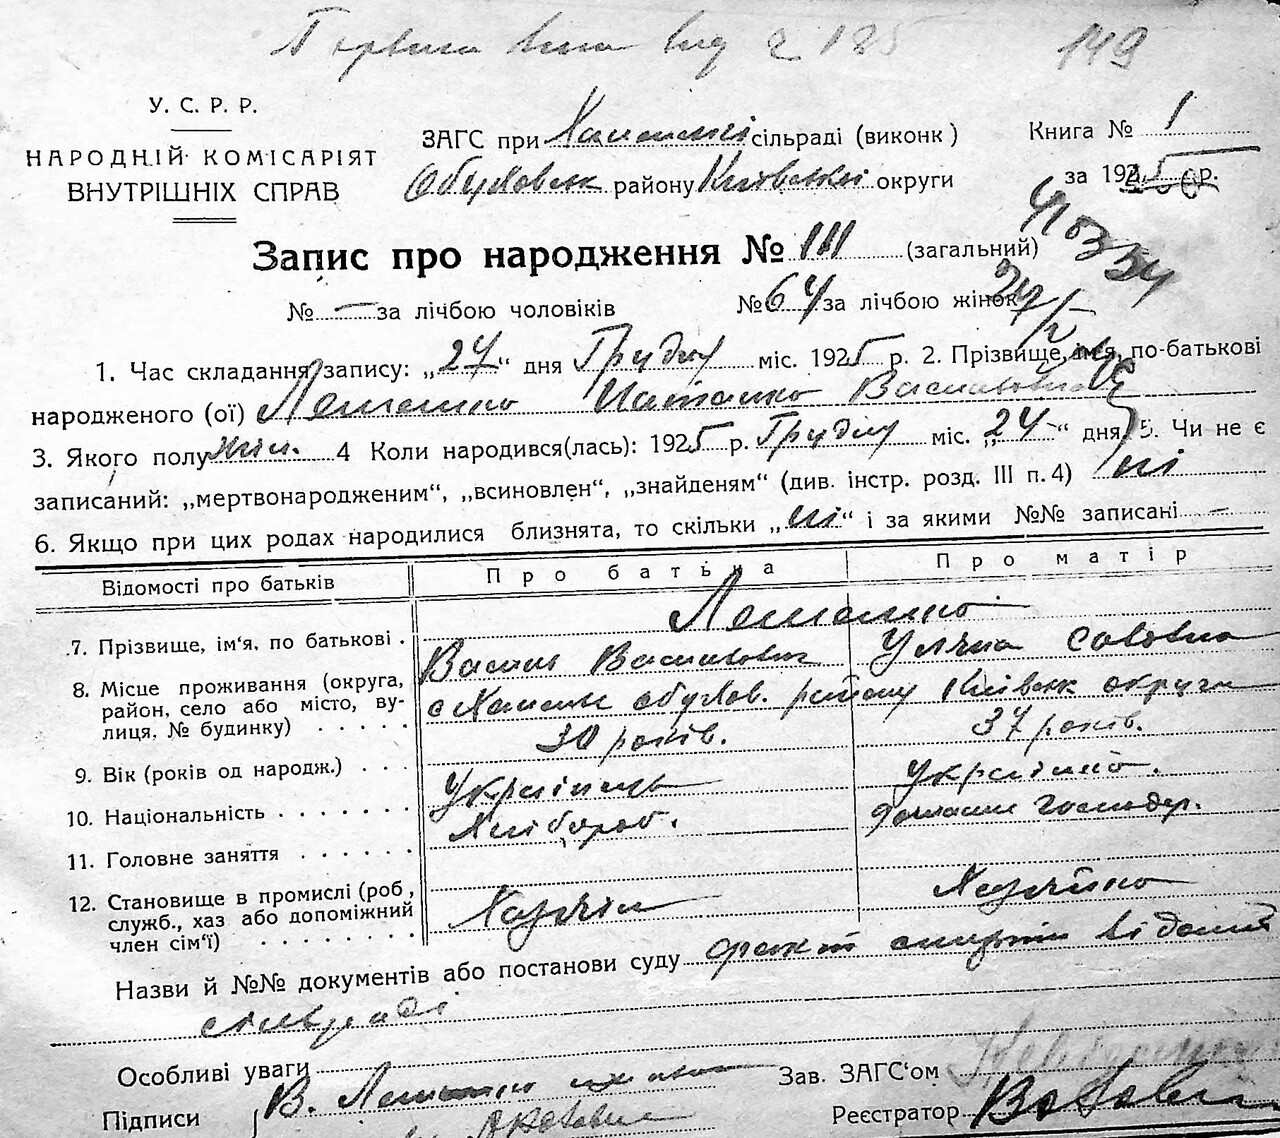 149
У. С. Р. Р.
НАРОДНІЙ КОМІСАРІЯТ
ВНУТРІШНІХ СПРАВ
ЗАГС при сільраді (виконк)
району округи
Книга № 1
за 192 р.
Запис про народження № 111 (загальний)
№ — за лічбою чоловіків № 64 за лічбою жінок
1. Час складання запису: „27“ дня Грудня міс. 1925 р. 2. Прізвище, ім'я, по-батькові
народженого (ої)
3. Якого полу жін. 4 Коли народився(лась): 1925 р. Грудня міс. „24“ дня 5. Чи не є
записаний: „мертвонародженим“, „всиновлен“, „знайденям“ (див. інстр. розд. III п. 4) ні
6. Якщо при цих родах народилися близнята, то скільки „ні“ і за якими №№ записані —
Відомості про батьків Про батька Про матір
7. Прізвище, ім'я, по батькові . Василь Васильович Уляна Савовна
8. Місце проживання (округа, район, село або місто, вулиця, № будинку) . . . . . району Київськ округи
9. Вік (років од народж.) . . . 30 років. 37 років.
10. Національність . . . . . . Українець Українка.
11. Головне заняття . . . . . . Хлібороб. Домашн господар.
12. Становище в промислі (роб, служб., хаз або допоміжний член сім'ї) . . . . . . . . Хазяїн Хазяйка
Назви й №№ документів або постанови суду
сільраді
Особливі уваги
Зав. ЗАГС'ом
Підписи В.
Реєстратор